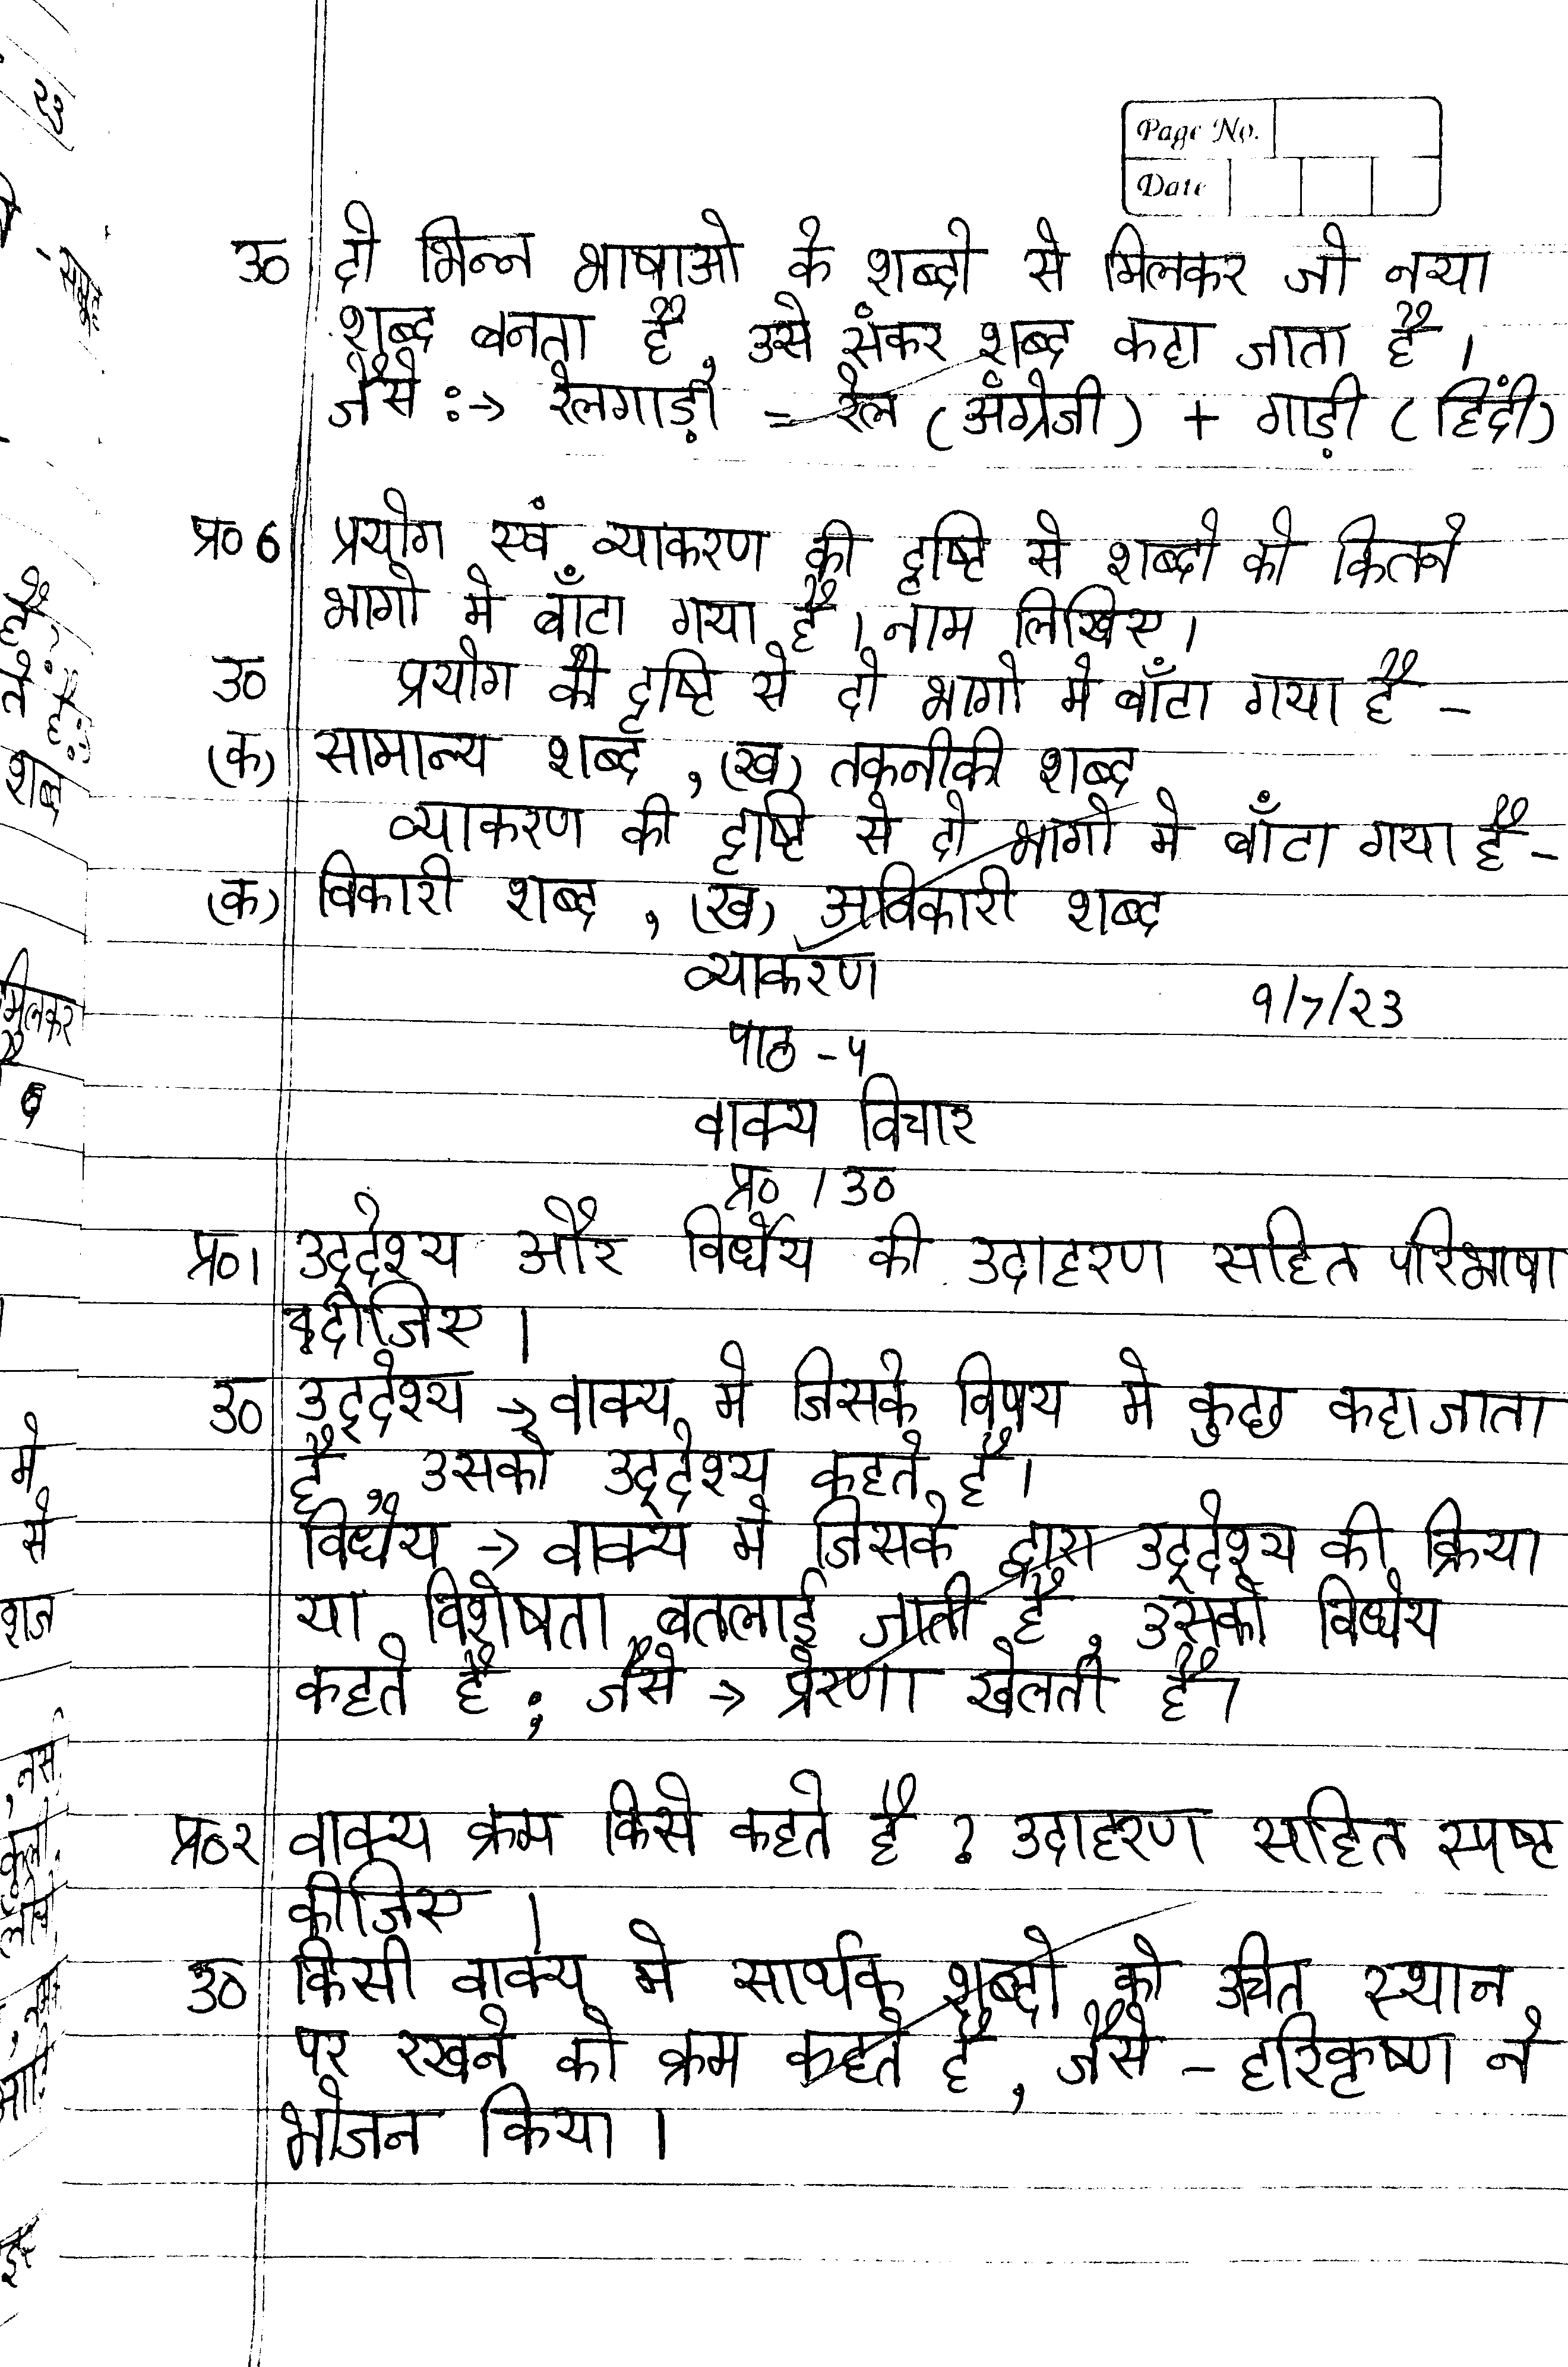 Page No.
Date
उ० दो भिन्न भाषाओ के शब्दो से मिलकर जो नया
शब्द बनता है, उसे संकर शब्द कहा जाता है।
जैसे :→ रेलगाड़ी = रेल (अंग्रेजी) + गाड़ी (हिंदी)
प्र० 6 प्रयोग एवं व्याकरण की दृष्टि से शब्दो को कितने
भागो मे बाँटा गया है। नाम लिखिए।
उ० प्रयोग की दृष्टि से दो भागो मे बाँटा गया है –
(क) सामान्य शब्द, (ख) तकनीकी शब्द
व्याकरण की दृष्टि से दो भागो मे बाँटा गया है –
(क) विकारी शब्द, (ख) अविकारी शब्द
व्याकरण
१/७/२३
पाठ – ५
वाक्य विचार
प्र० / उ०
प्र०१ उद्देश्य और विधेय की उदाहरण सहित परिभाषा
दीजिए।
उ० उद्देश्य → वाक्य मे जिसके विषय मे कुछ कहा जाता
है, उसको उद्देश्य कहते है।
विधेय → वाक्य मे जिसके द्वारा उद्देश्य की क्रिया
या विशेषता बतलाई जाती है, उसको विधेय
कहते है; जैसे → प्रेरणा खेलती है।
प्र०२ वाक्य क्रम किसे कहते है? उदाहरण सहित स्पष्ट
कीजिए।
उ० किसी वाक्य मे सार्थक शब्दो को उचित स्थान
पर रखने को क्रम कहते है, जैसे – हरिकृष्ण ने
भोजन किया।